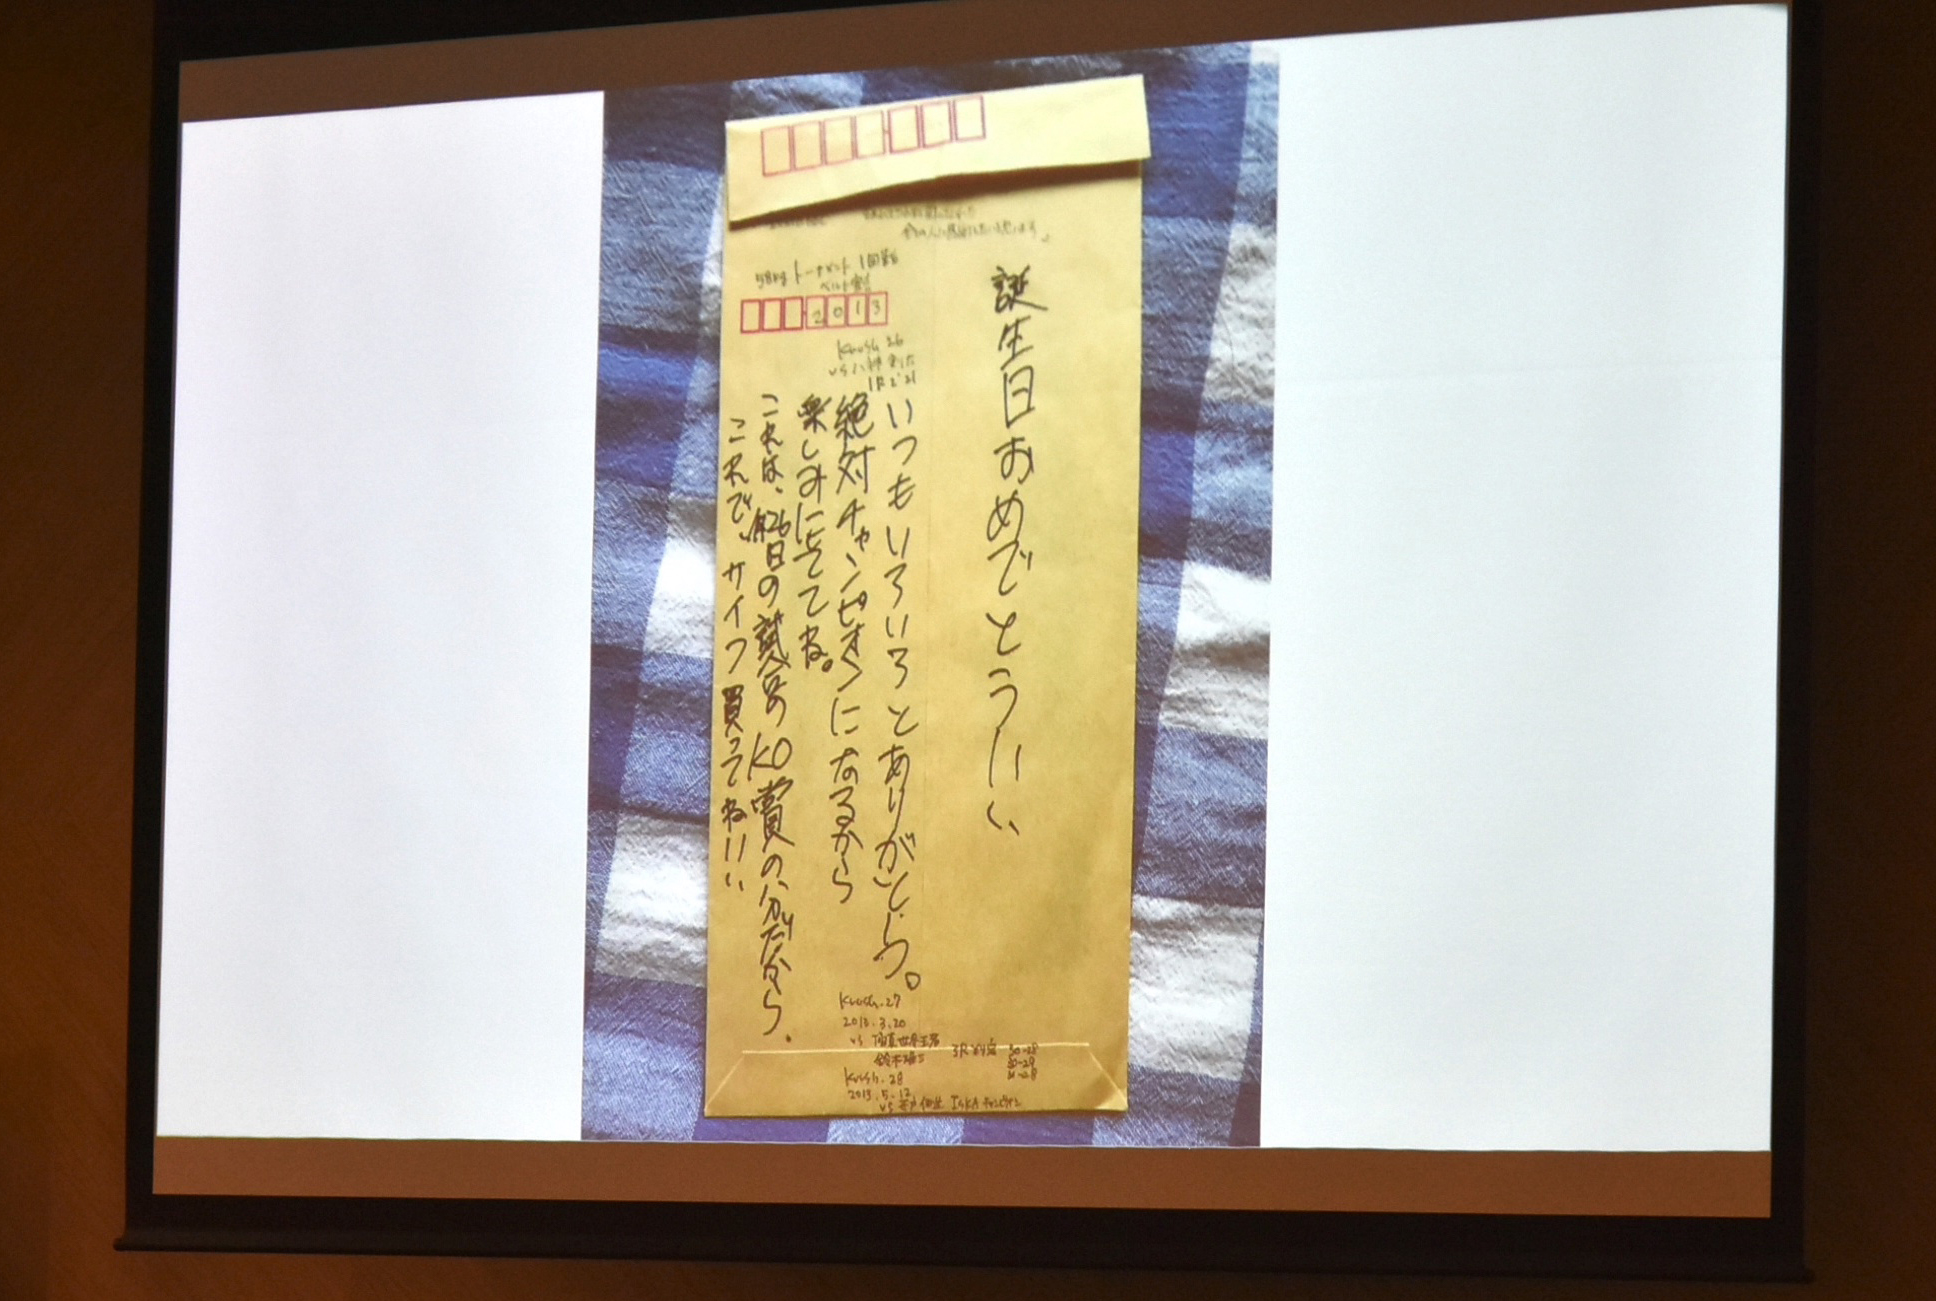 誕生日おめでとう!!
いつもいろいろとありがとう。
絶対チャンピオンになるから
楽しみにしててね。
これは、26日の試合のKO賞の分だから、
これで、サイフ買ってね!!
58kg トーナメント 1回戦
ベルト
2013
Krush.26
vs
Krush.27
2013.3.20
vs
3R 判定 30-28
30-29
Krush.28
2013.5.12
vs ISKA チャンピオン